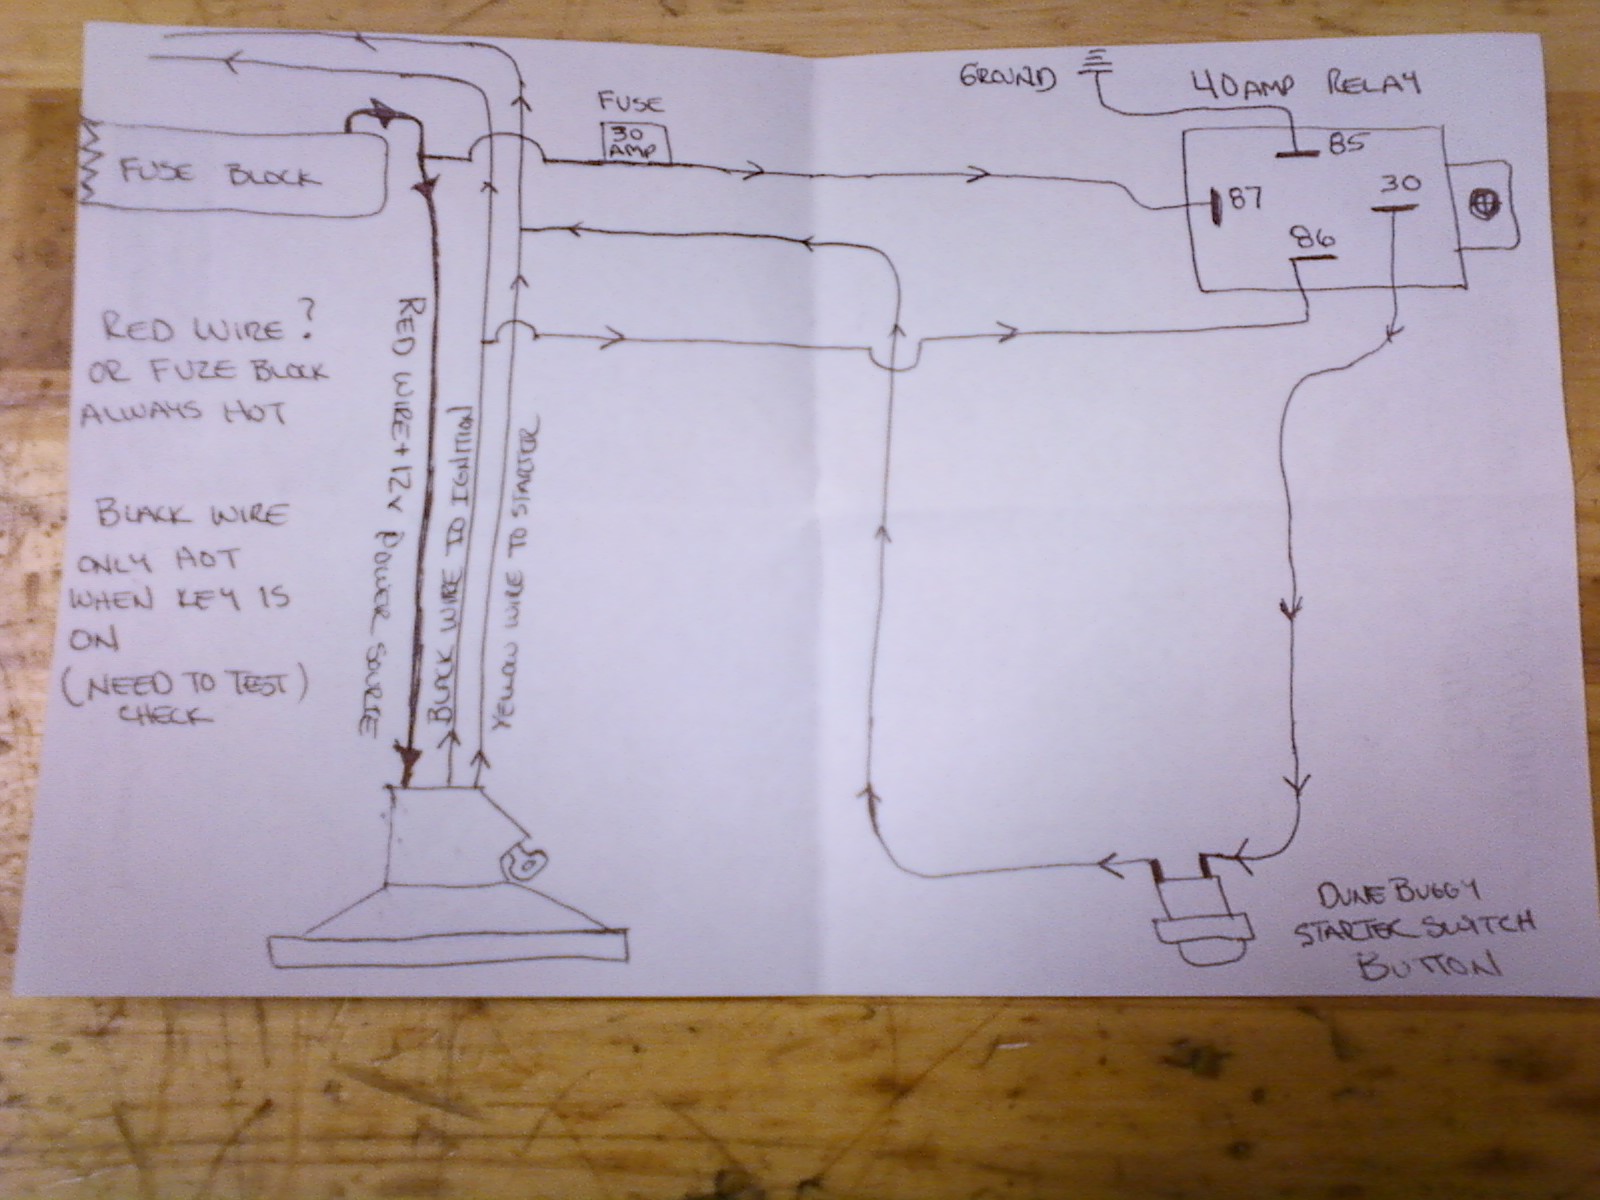 GROUND
40 AMP RELAY
FUSE
30
AMP
85
87
30
86
FUSE BLOCK
RED WIRE?
OR FUZE BLOCK
ALWAYS HOT
BLACK WIRE
ONLY HOT
WHEN KEY IS
ON
(NEED TO TEST)
CHECK
RED WIRE +12V POWER SOURCE
BLACK WIRE TO IGNITION
YELLOW WIRE TO STARTER
DUNE BUGGY
STARTER SWITCH
BUTTON